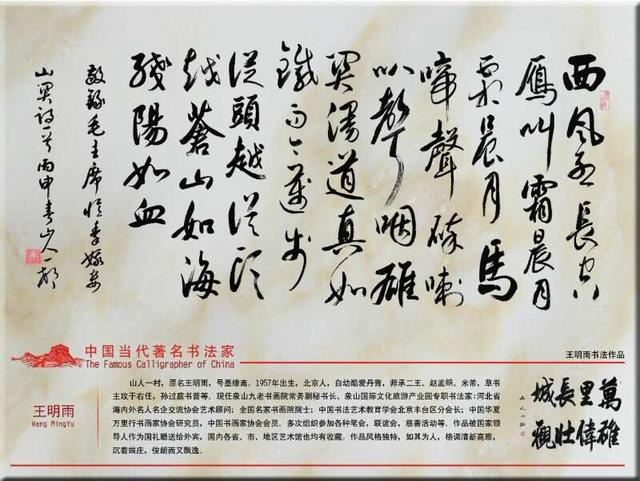 西風烈長空
雁叫霜晨月
霜晨月馬
啼聲碎喇
叭聲咽雄
關漫道真如
鐵而今邁步
從頭越從頭
越蒼山如海
殘陽如血
敬錄毛主席憶秦娥婁
山關詞一首丙申春山人一村
中国当代著名书法家
The Famous Calligrapher of China
王明雨书法作品
王明雨
Wang MingYu
山人一村，原名王明雨，号墨缘斋，1957年出生，北京人，自动酷爱丹青，师承二王、赵孟頫、米芾，草书
主攻于右任、孙过庭书普等。现任象山九老书画院常务副秘书长、象山国际文化旅游产业园专职书法家；河北省
海内外名人名企交流协会艺术顾问；全国名家书画院院士；中国书法艺术教育学会北京丰台区分会长；中国华夏
万里行书画家协会研究员，中国书画家协会会员。多次组织参加各种笔会，联谊会，慈善活动等。作品被国家领
导人作为国礼赠送给外宾，国内各省、市、地区艺术馆也均有收藏。作品风格独特，如其为人，格调清新高雅，
沉着端庄，俊朗而又飘逸。
萬里長城
雄偉壯觀
山人一村